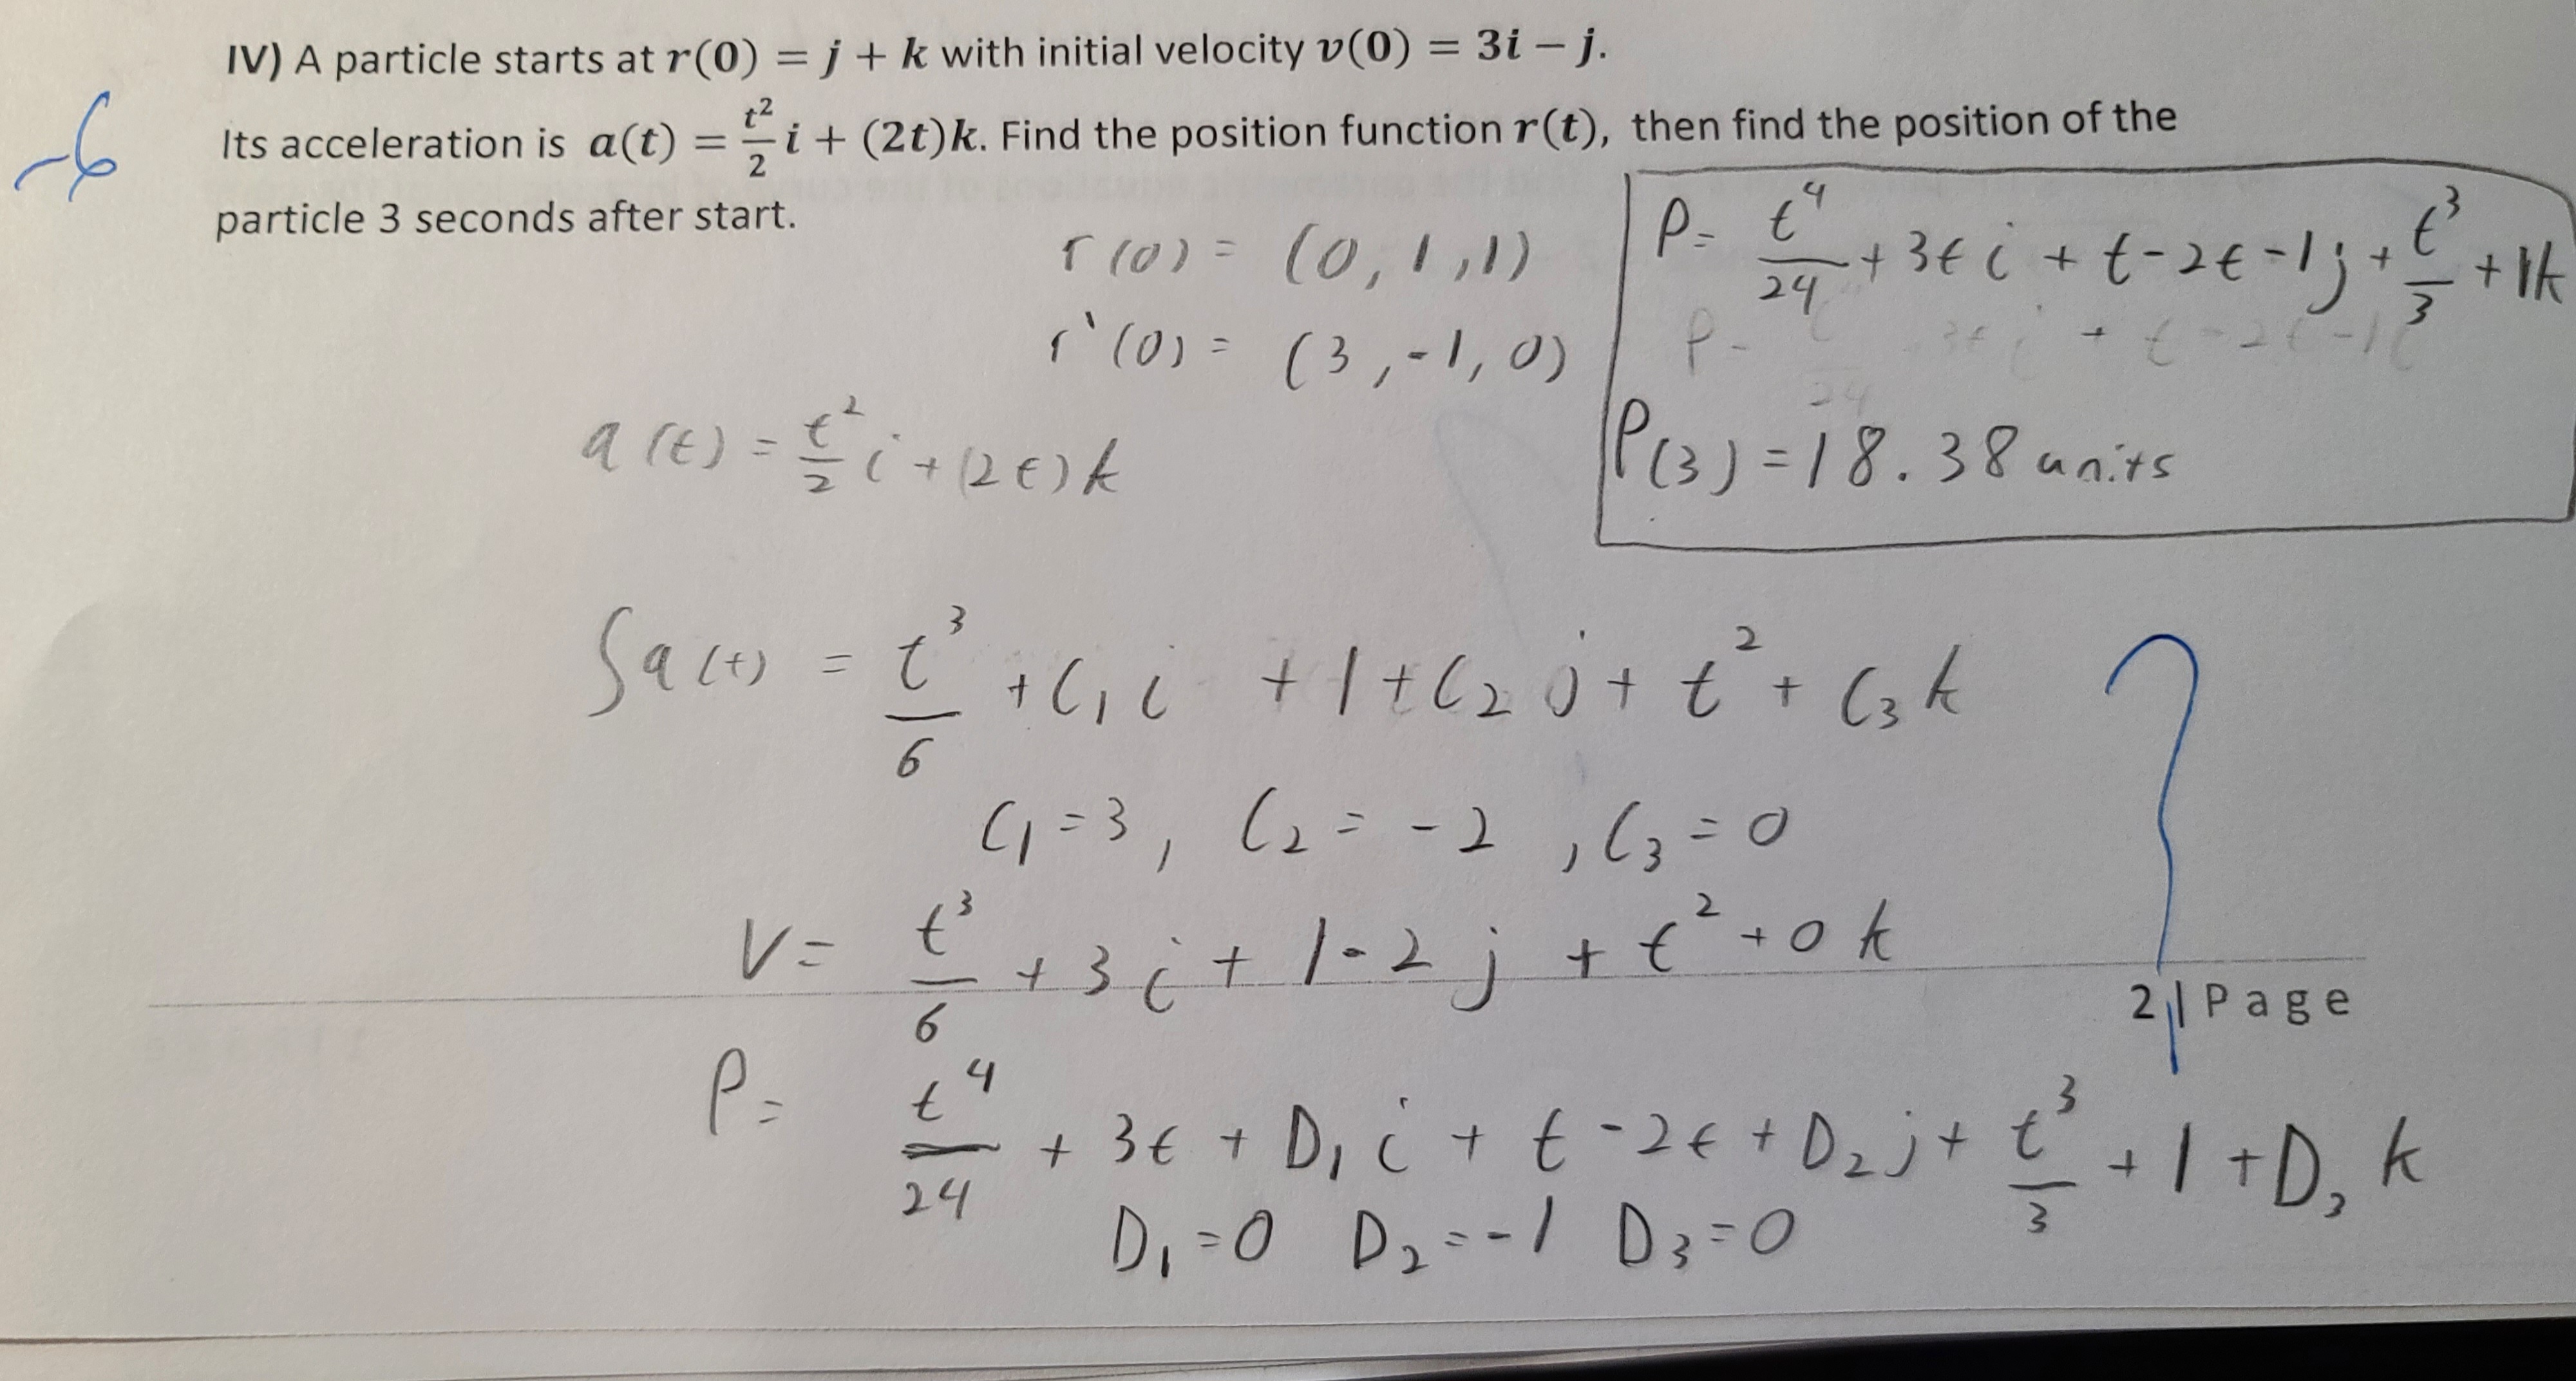 IV) A particle starts at r(0) = j + k with initial velocity v(0) = 3i − j.
-6
Its acceleration is a(t) = t²/2 i + (2t)k. Find the position function r(t), then find the position of the
particle 3 seconds after start.
r(0) = (0, 1, 1)
r'(0) = (3, -1, 0)
P = t⁴/24 + 3t i + t - 2t - 1 j + t³/3 + 1k
P(3) = 18.38 units
a(t) = t²/2 i + (2t) k
∫a(t) = t³/6 + C₁ i + 1 + C₂ j + t² + C₃ k
C₁ = 3, C₂ = -2, C₃ = 0
V = t³/6 + 3 i + 1 - 2 j + t² + 0 k
2 | Page
P = t⁴/24 + 3t + D₁ i + t - 2t + D₂ j + t³/3 + 1 + D₃ k
D₁ = 0 D₂ = -1 D₃ = 0